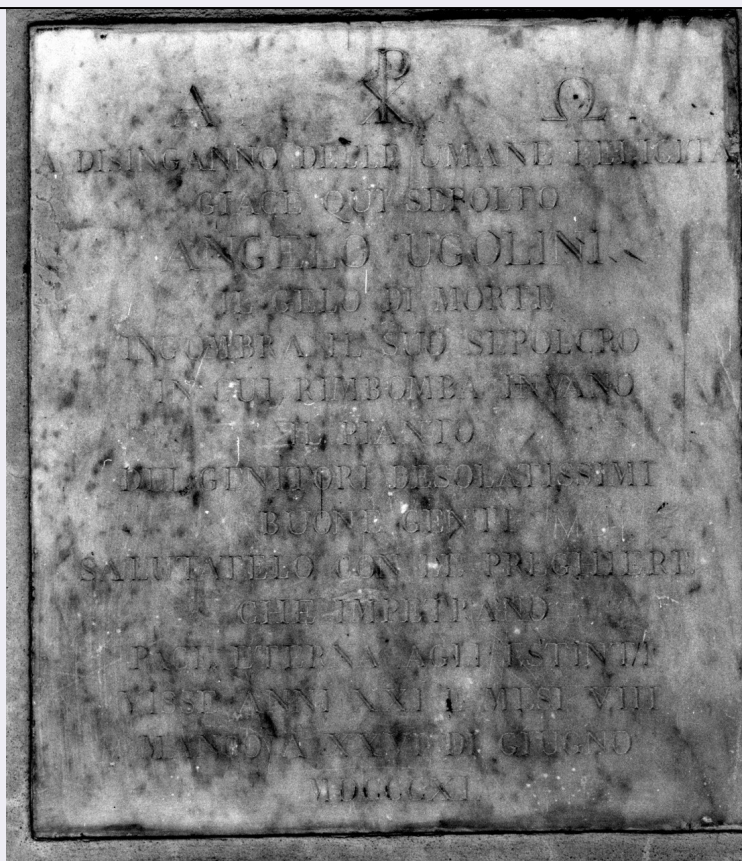 Α ☧ Ω
A DISINGANNO DELLE UMANE FELICITA
GIACE QUI SEPOLTO
ANGELO UGOLINI
IL GELO DI MORTE
INGOMBRA IL SUO SEPOLCRO
IN CUI RIMBOMBA INVANO
IL PIANTO
DEI GENITORI DESOLATISSIMI
BUONE GENTI
SALUTATELO CON LE PREGHIERE
CHE IMPETRANO
PACE ETERNA AGLI ESTINTI
VISSE ANNI XXI E MESI VIII
MANCÒ A XXVI DI GIUGNO